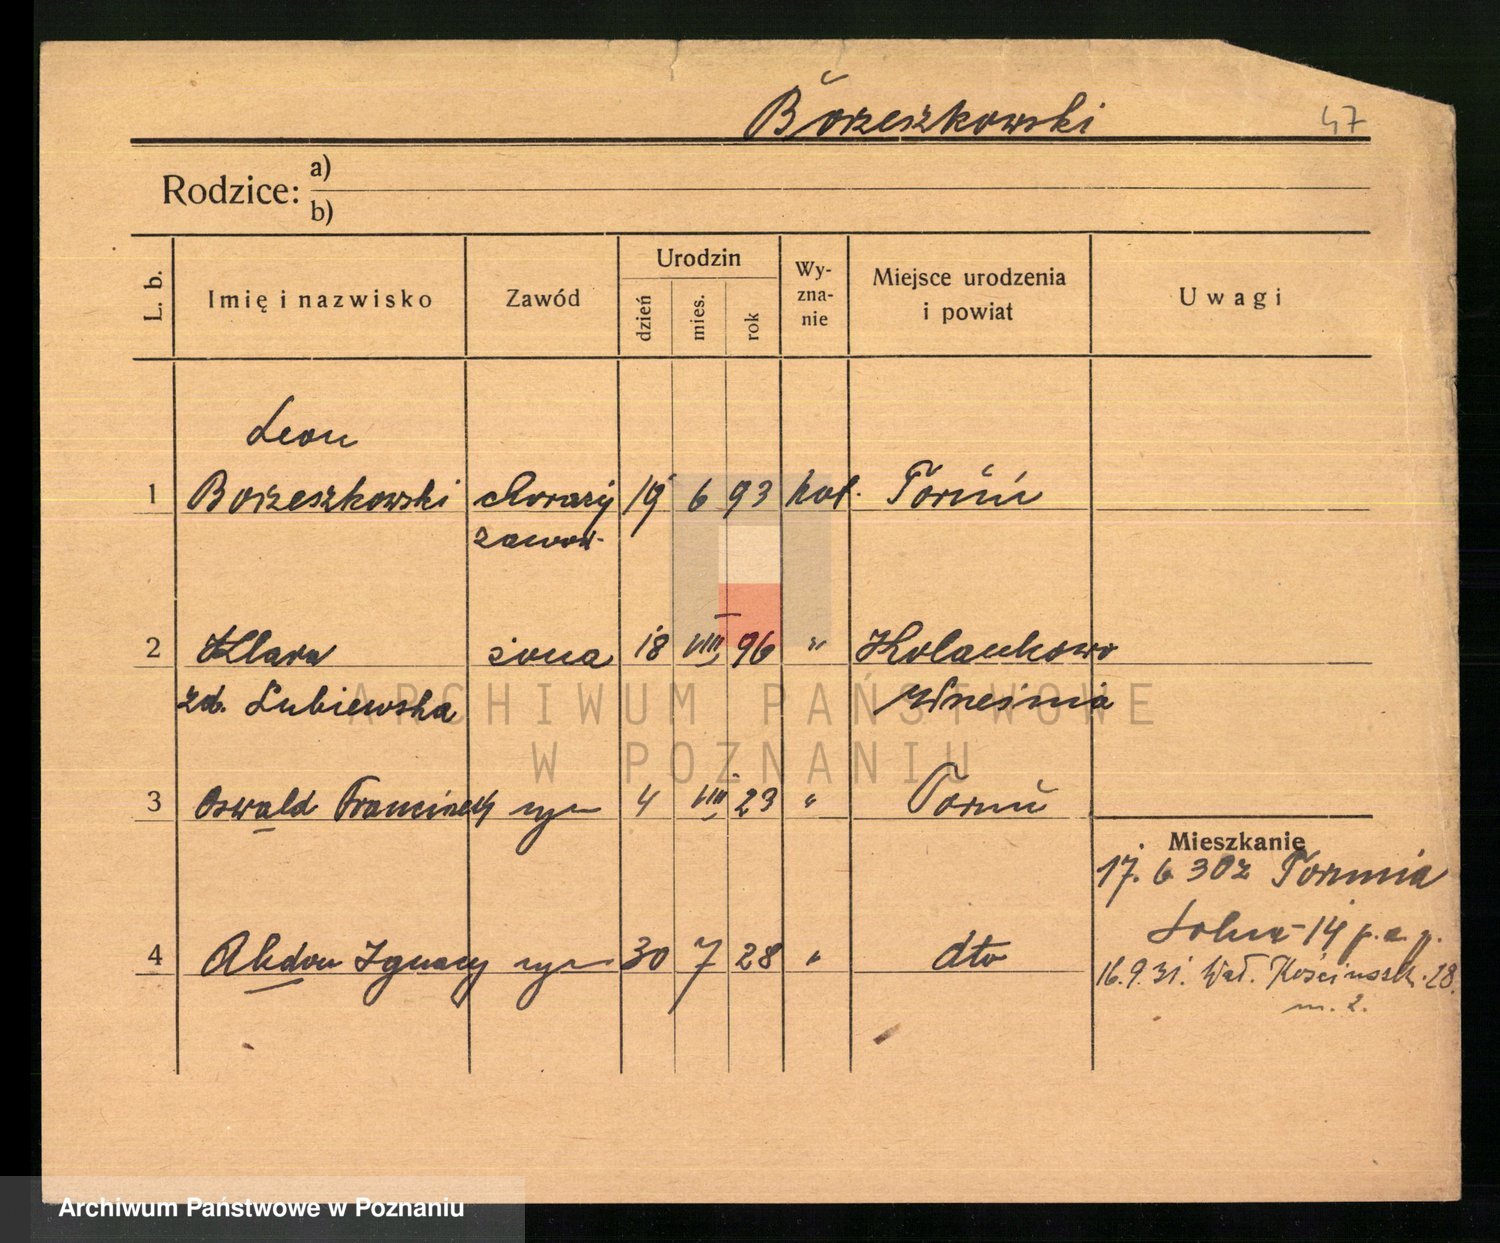 Borzeszkowski
47
Rodzice: a)
b)
L. b.
Imię i nazwisko
Zawód
Urodzin
dzień
mies.
rok
Wy-
zna-
nie
Miejsce urodzenia
i powiat
Uwagi
Leon
1 Borzeszkowski chorąży 19 6 93 kat. Toruń
zawod.
2 Klara żona 18 VIII 96 " Kołaczkowo
zd. Lubiewska Września
3 Oswald Franciszek syn 4 VIII 23 " Toruń
Mieszkanie
17. 6 30 z Torunia
Solna 14 p.a.p.
4 Abdon Ignacy syn 30 7 28 " dto
16.9.31. Wał. Kościuszk. 28.
m. 2.
ARCHIWUM PAŃSTWOWE
W POZNANIU
Archiwum Państwowe w Poznaniu